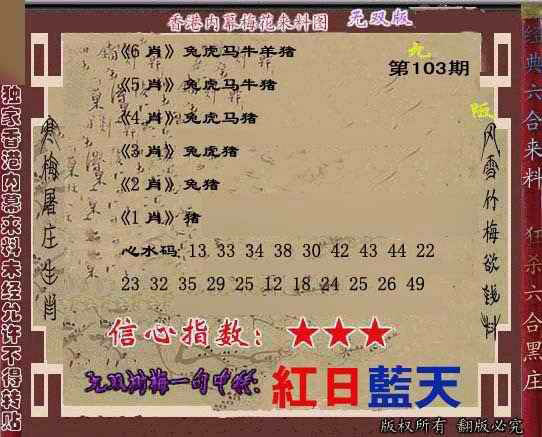 香港内幕梅花来料图 无双版
九
第103期
《6 肖》兔虎马牛羊猪
《5 肖》兔虎马牛猪
《4 肖》兔虎马猪
《3 肖》兔虎猪
《2 肖》兔猪
《1 肖》猪
心水码: 13 33 34 38 30 42 43 44 22
23 32 35 29 25 12 18 24 25 26 49
信心指数: ★★★
紅日藍天
版权所有 翻版必究
独家香港内幕来料未经允许不得转贴
寒梅屠庄生肖
风雪竹梅欲钱料
经典六合来料
狂杀六合黑庄